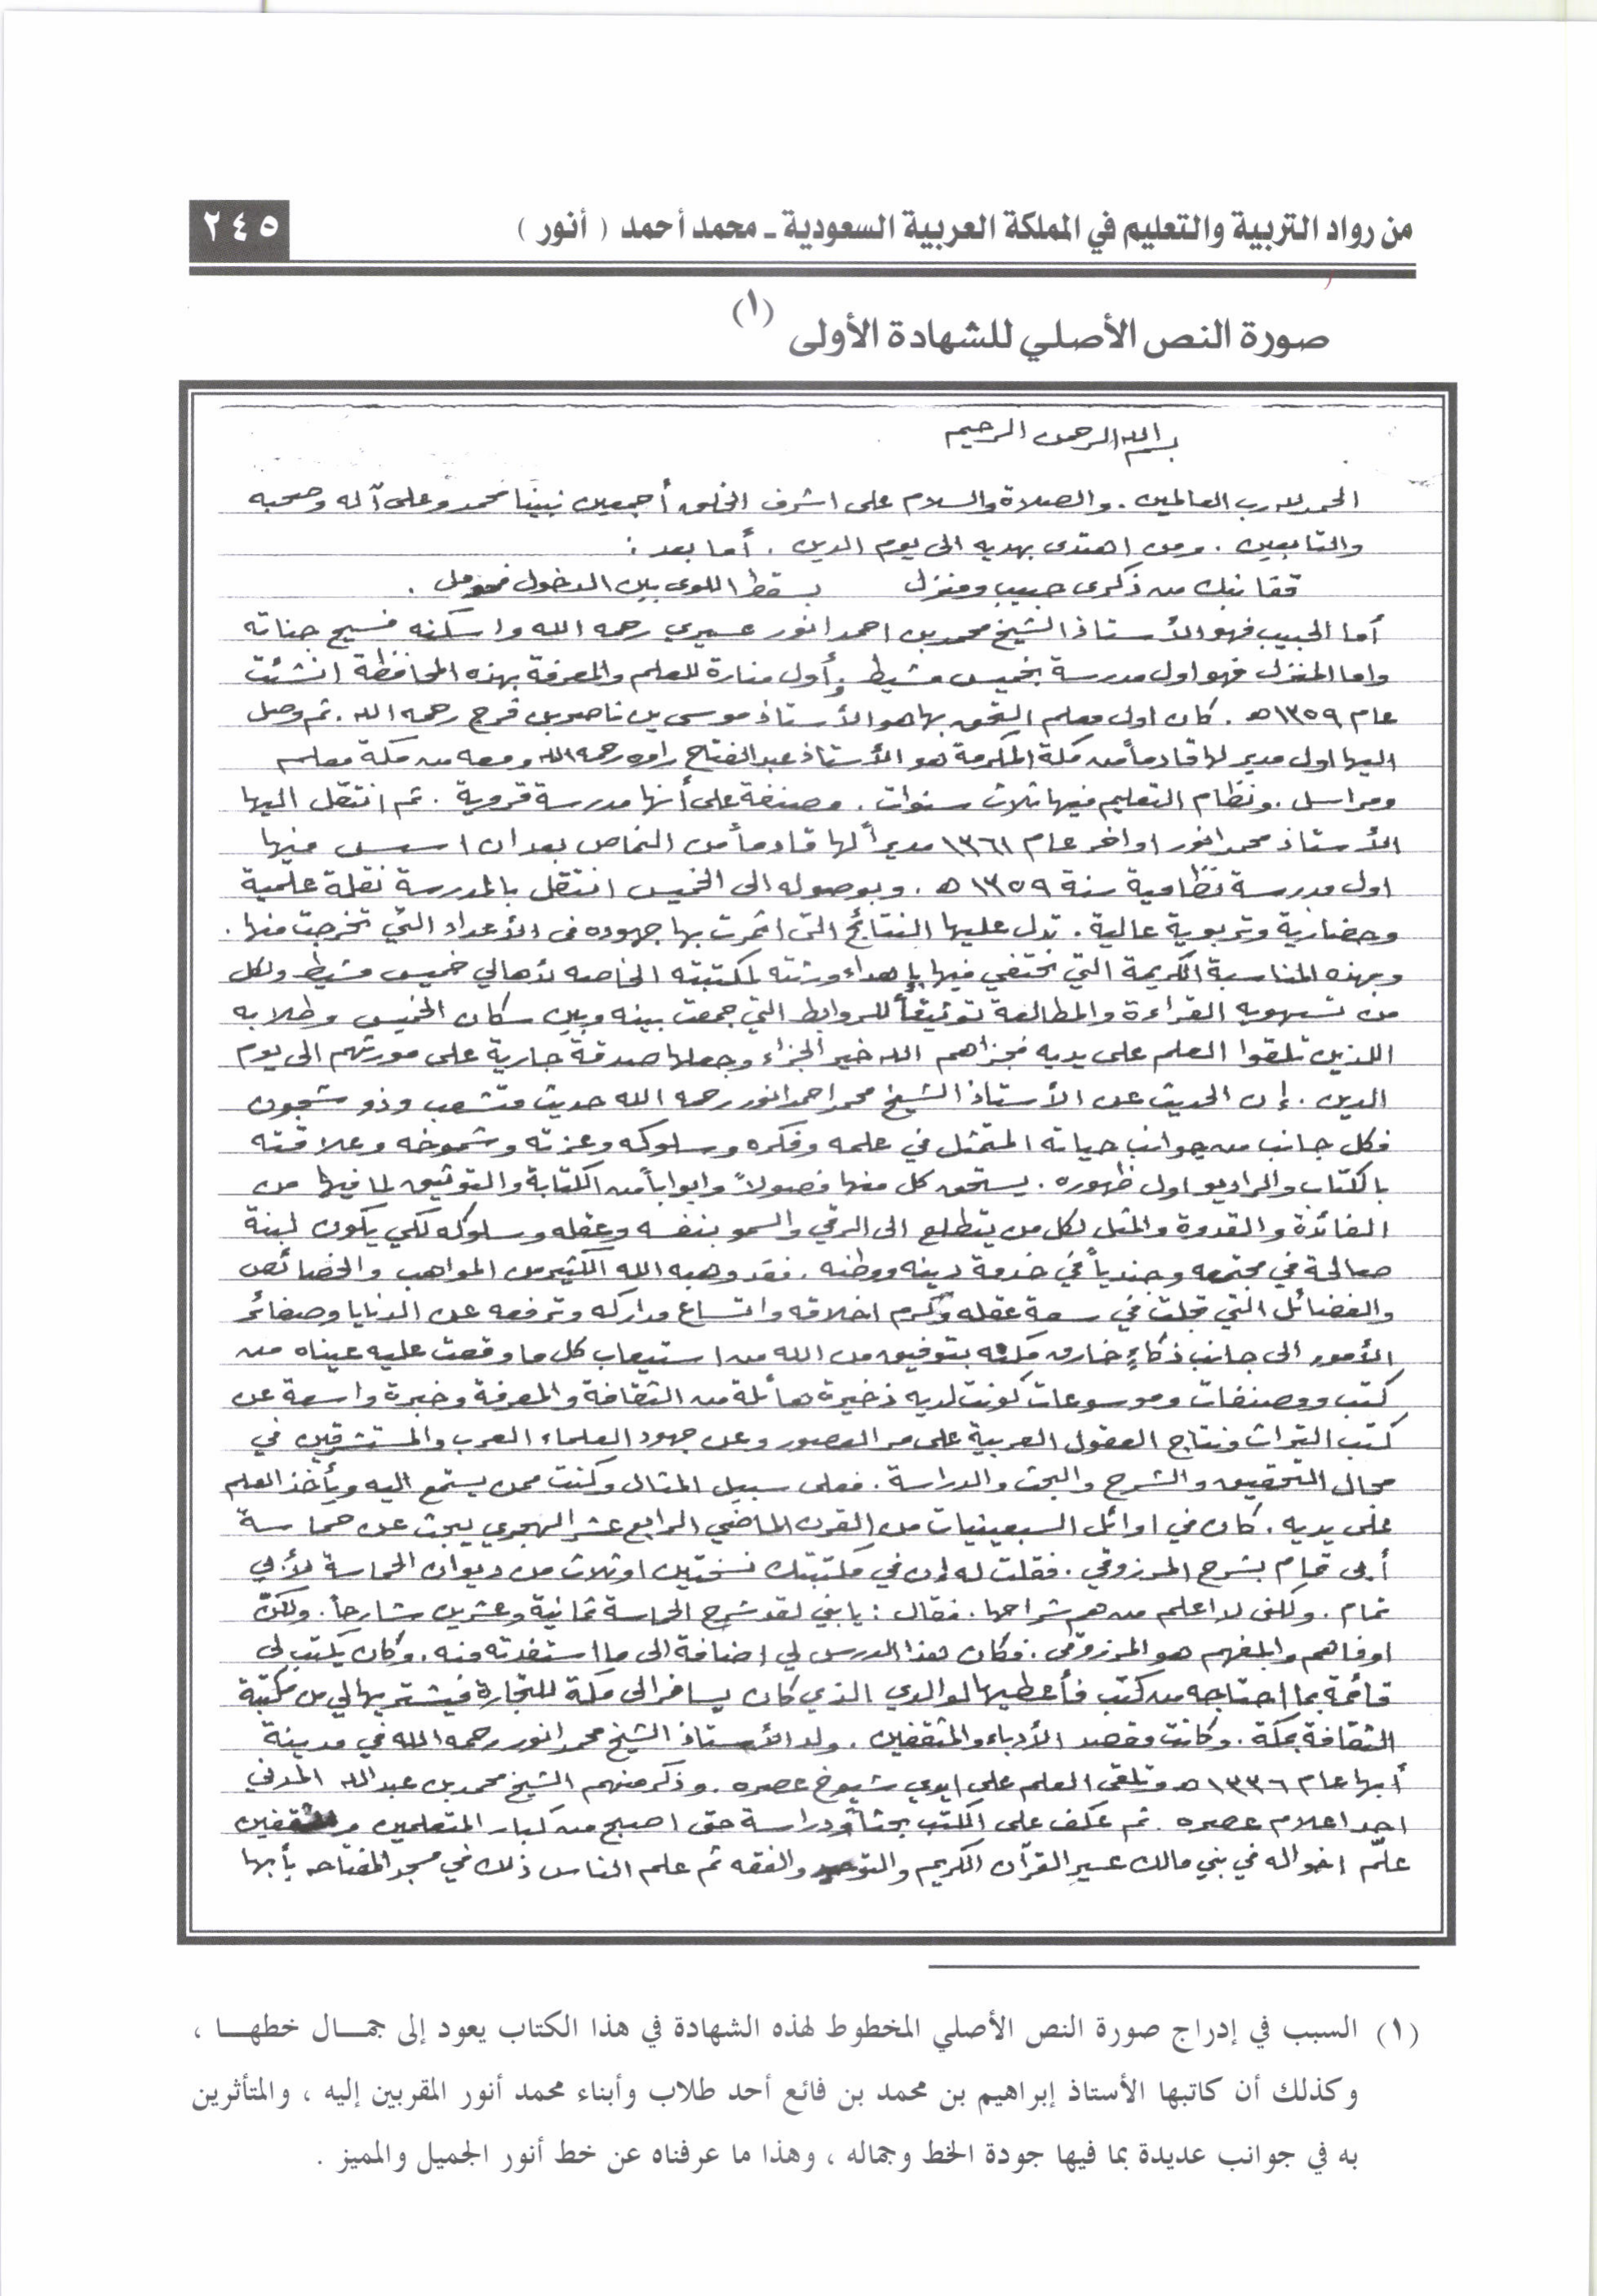 من رواد التربية والتعليم في المملكة العربية السعودية ـ محمد أحمد ( أنور )
٢٤٥
صورة النص الأصلي للشهادة الأولى (١)
بسم الله الرحمن الرحيم
الحمد لله رب العالمين . والصلاة والسلام على اشرف الخلق أجمعين نبينا محمد وعلى آله وصحبه
والتابعين . ومن اهتدى بهديه الى يوم الدين . أما بعد :
قفا نبك من ذكرى حبيب ومنزل بسقط اللوى بين الدخول فحومل .
أما الحبيب فهو الأستاذ الشيخ محمد بن احمد انور عسيري رحمه الله واسكنه فسيح جناته
واما المنزل فهو اول مدرسة بخميس مشيط . وأول منارة للعلم والمعرفة بهذه المحافظة انشئت
عام ١٣٥٩هـ . كان اول معلم التحق بها هو الأستاذ موسى بن ناصر بن فرج رحمه الله . ثم وصل
اليها اول مدير لها قادماً من مكة المكرمة هو الأستاذ عبد الفتاح راوه رحمه الله ومعه من مكة معلم
ومراسل . ونظام التعليم فيها ثلاث سنوات . مصنفة على أنها مدرسة قروية . ثم انتقل اليها
الأستاذ محمد انور اواخر عام ١٣٦١ مديراً لها قادماً من النماص بعد ان اسس فيها
اول مدرسة نظامية سنة ١٣٥٩هـ . وبوصوله الى الخميس انتقل بالمدرسة نقلة علمية
وحضارية وتربوية عالية . تدل عليها النتائج التى اثمرت بها جهوده فى الأعداد التي تخرجت منها .
وبهذه المناسبة الكريمة التي نحتفي فيها بإهداء ورثته لمكتبته الخاصه لأهالي خميس مشيط ولكل
من تستهويه القراءة والمطالعة توثيقاً للروابط التي جمعت بينه وبين سكان الخميس وطلابه
اللذين تلقوا العلم على يديه فجزاهم الله خير الجزاء وجعلها صدقة جارية على مورثهم الى يوم
الدين . إن الحديث عن الأستاذ الشيخ محمد احمد انور رحمه الله حديث متشعب وذو شجون
فكل جانب من جوانب حياته المتمثل في علمه وفكره وسلوكه وعزته وشموخه وعلاقته
بالكتاب والراديو اول ظهوره . يستحق كل منها فصولاً وابواباً من الكتابة والتوثيق لما فيها من
الفائدة والقدوة والمثل لكل من يتطلع الى الرقي والسمو بنفسه وعقله وسلوكه لكي يكون لبنة
صالحة في مجتمعه وجندياً في خدمة دينه ووطنه . فقد وهبه الله الكثير من المواهب والخصائص
والفضائل التي تجلت في سعة عقله وكرم اخلاقه واتساع مداركه وترفعه عن الدنايا وصغائر
الأمور الى جانب ذكاءٍ خارق مكنه بتوفيق من الله من استيعاب كل ما وقعت عليه عيناه من
كتب ومصنفات وموسوعات كونت لديه ذخيرة هائلة من الثقافة والمعرفة وخبرة واسعة عن
كتب التراث ونتاج العقول العربية على مر العصور وعن جهود العلماء العرب والمستشرقين في
مجال التحقيق والشرح والبحث والدراسة . فعلى سبيل المثال وكنت ممن يستمع اليه ويأخذ العلم
على يديه . كان في اوائل السبعينيات من القرن الماضي الرابع عشر الهجري يبحث عن حماسة
أبى تمام بشرح المرزوقي . فقلت له إن في مكتبتك نسختين او ثلاث من ديوان الحماسة لأبي
تمام . ولكنى لا اعلم من هم شراحها . فقال : يابني لقد شرح الحماسة ثمانية وعشرين شارحاً . ولكنّ
اوفاهم وابلغهم هو المرزوقى . فكان هذا الدرس لي اضافة الى ما استفدته منه . وكان يكتب لى
قائمة بما احتاجه من كتب فأعطيها لوالدي الذي كان يسافر الى مكة للتجارة فيشتريها لي من مكتبة
الثقافة بمكة . وكانت مقصد الأدباء والمثقفين . ولد الأستاذ الشيخ محمد انور رحمه الله في مدينة
أبها عام ١٣٣٦هـ وتلقى العلم على ايدي شيوخ عصره . وذكر منهم الشيخ محمد بن عبد الله المدني
احد اعلام عصره . ثم عكف على الكتب بحثاً ودراسة حتى اصبح من كبار المتعلمين والمثقفين
علّم اخواله في بني مالك عسير القرآن الكريم والتوحيد والفقه ثم علم الناس ذلك في مسجد المفتاحه بأبها
(١) السبب في إدراج صورة النص الأصلي المخطوط لهذه الشهادة في هذا الكتاب يعود إلى جمـال خطهـا ،
وكذلك أن كاتبها الأستاذ إبراهيم بن محمد بن فائع أحد طلاب وأبناء محمد أنور المقربين إليه ، والمتأثرين
به في جوانب عديدة بما فيها جودة الخط وجماله ، وهذا ما عرفناه عن خط أنور الجميل والمميز .